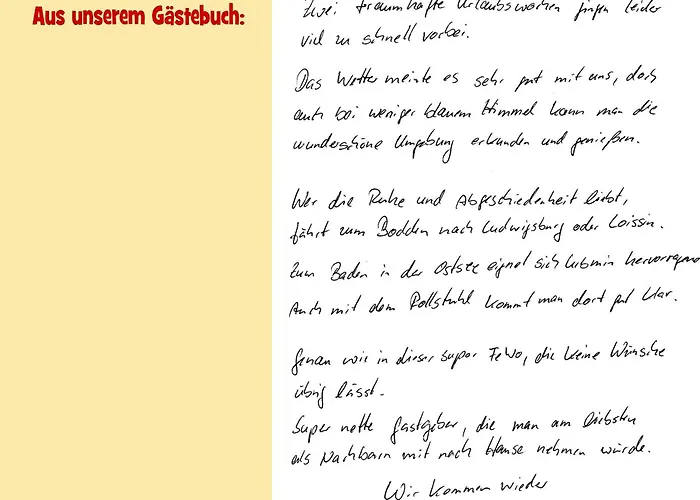 Aus unserem Gästebuch:
Zwei traumhafte Urlaubswochen gingen leider
viel zu schnell vorbei.
Das Wetter meinte es sehr gut mit uns, doch
auch bei weniger blauem Himmel kann man die
wunderschöne Umgebung erkunden und genießen.
Wer die Ruhe und Abgeschiedenheit liebt,
fährt zum Bodden nach Ludwigsburg oder Loissin.
Zum Baden in der Ostsee eignet sich Lubmin hervorragend
Auch mit dem Rollstuhl kommt man dort gut klar.
Genau wie in dieser super FeWo, die keine Wünsche
übrig lässt.
Super nette Gastgeber, die man am Liebsten
als Nachbarn mit nach Hause nehmen würde.
Wir kommen wieder